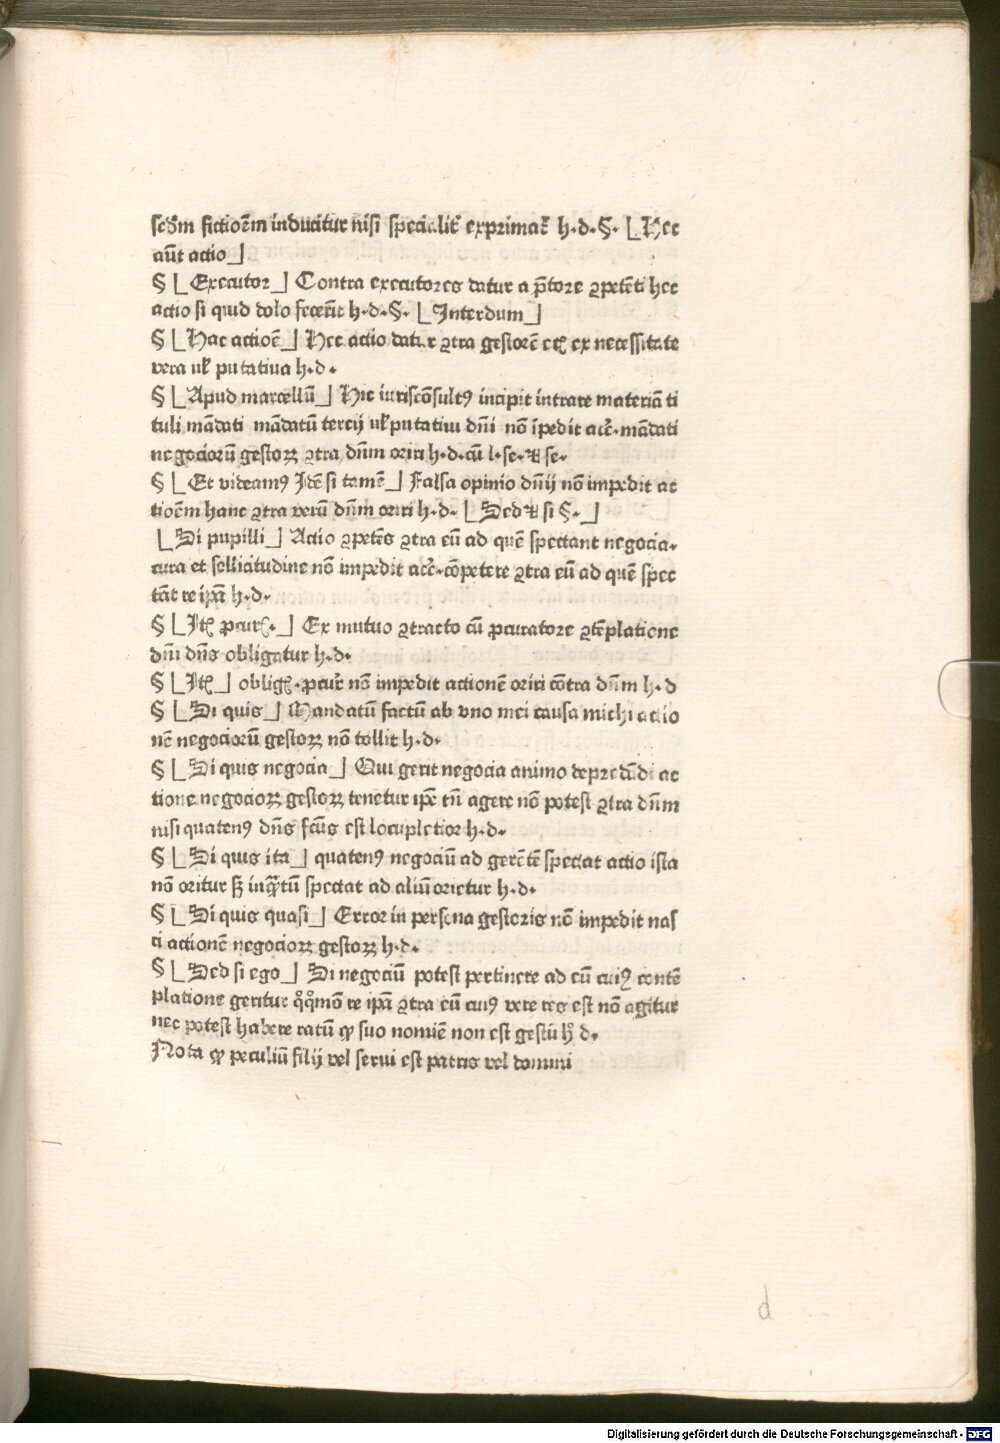 scd'm fictiōem inducitur nisi specialit' exprimat' h·d·§· [Hec
aūt actio]
§ [Executor] Contra executores datur a p̄tore ꝯpetēti hec
actio si quid dolo fecer̄it h·d·§· [Interdum]
§ [Hac actiōe] Hec actio datur ꝯtra gestorē etꝫ ex necessitate
vera ul' putatiua h·d·
§ [Apud marcellū] Hic iuriscōsultꝰ incipit intrare materiā ti
tuli mādati mādatū tercij ul' putatiui dn̄i nō īpedit acc̄·mādati
negociorū gestoꝝ ꝯtra dn̄m oriri h·d·cū l·se·⁊ se·
§ [Et videamꝰ Idē si tamē] Falsa opinio dn̄ij nō impedit ac
tiōem hanc ꝯtra verū dn̄m oriri h·d· [Sed ⁊ si §·]
[Si pupilli] Actio ꝯpetēs ꝯtra eū ad quē spectant negocia·
cura et sollicitudine nō impedit acc̄·cōpetere ꝯtra eū ad quē spec
tāt re ip̄a h·d·
§ [Itꝫ ꝓcur·] Ex mutuo ꝯtracto cū ꝓcuratore ꝯtēplatione
dn̄i dn̄s obligatur h·d·
§ [Itꝫ] obligꝫ·ꝓcur' nō impedit actionē oriri cōtra dn̄m h·d
§ [Si quis] Mandatū factū ab vno mei causa michi actio
nē negociorū gestoꝝ nō tollit h·d·
§ [Si quis negocia] Qui gerit negocia animo depredādi ac
tione negocioꝝ gestoꝝ tenetur ip̄e tn̄ agere nō potest ꝯtra dn̄m
nisi quatenꝰ dn̄s fcūs est locupletior h·d·
§ [Si quis ita] quatenꝰ negociū ad gerētē spectat actio ista
nō oritur sꝫ inqͣtū spectat ad aliū orietur h·d·
§ [Si quis quasi] Error in persona gestoris nō impedit nas
ci actionē negocioꝝ gestoꝝ h·d·
§ [Sed si ego] Si negociū potest pertinere ad eū cuiꝰ contē
platione geritur qͦqͦmō re ip̄a ꝯtra eū cuiꝰ vere res est nō agitur
nec potest habere ratū ꝙ suo nomīe non est gestū h·d·
Nota ꝙ peculiū filij vel serui est patris vel domini
d
Digitalisierung gefördert durch die Deutsche Forschungsgemeinschaft - DFG